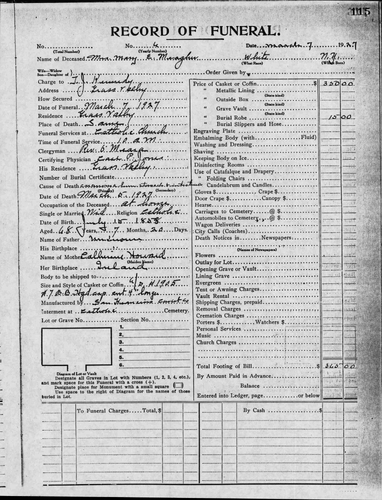 115
RECORD OF FUNERAL.
No. No. 4 Date March 7 1927
(Total Number) (Yearly Number)
Name of Deceased Mrs. Mary E. White N.Y.
(What Race) (Where Born)
Wife—Widow
Son—Daughter of
Order Given by
Charge to T. J.
Address Grass Valley
How Secured
Date of Funeral March 7, 1927
Residence Grass Valley
Place of Death Same
Funeral Services at Catholic Church
Time of Funeral Service A.M
Clergyman Rev.
Certifying Physician Carl P. Jones
His Residence Grass Valley
Number of Burial Certificate
Cause of Death
Date of Death March 5, 1927
Occupation of the Deceased At home
Single or Married Wid Religion Catholic
Date of Birth July 15 1858
Aged 68 Years, 7 Months, 20 Days
Name of Father Unknown
His Birthplace
Name of Mother Catherine Howard
(Maiden Name)
Her Birthplace Ireland
Body to be shipped to
Size and Style of Casket or Coffin
Manufactured by San Francisco
Interment at Catholic Cemetery.
Lot or Grave No. Section No.
1.
2.
3.
4.
5.
6.
Diagram of Lot or Vault
Designate all Graves in Lot with Numbers (1, 2, 3, 4, etc.), and mark space for this Funeral with a cross (+).
Designate place for Monument with a small square
Use space to the right of Diagram for the names of those buried in Lot.
Price of Casket or Coffin $ 350 00
" Metallic Lining
(State kind)
" Outside Box
(State kind)
" Grave Vault
(State kind)
" Burial Robe 15 00
" Burial Slippers and Hose
Engraving Plate
Embalming Body (with Fluid)
Washing and Dressing
Shaving
Keeping Body on Ice
Disinfecting Rooms
Use of Catafalque and Drapery
" Folding Chairs
" Candelabrum and Candles
Gloves
Door Crape
Hearse
Carriages to Cemetery @ $
Automobiles to Cemetery @ $
Wagon Deliveries
City Calls (Coaches)
Death Notices in Newspapers
(Names of Newspapers)
Flowers
Outlay for Lot
Opening Grave or Vault
Lining Grave
Evergreen
Tent or Awning Charges
Vault Rental
Shipping Charges, prepaid
Removal Charges
Cremation Charges
Porters $ Watchers $
Personal Services
Music
Church Charges
Total Footing of Bill $ 365 00
By Amount Paid in Advance
Balance
Entered into Ledger, page or below.
To Funeral Charges Total, $
By Cash $